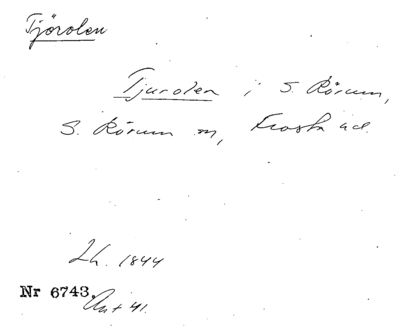 Tjörolen
Tjurolen i S. Rörum,
S. Rörum sn, Frosta hd.
Lh. 1844
Nr 6743.
Ant 41.